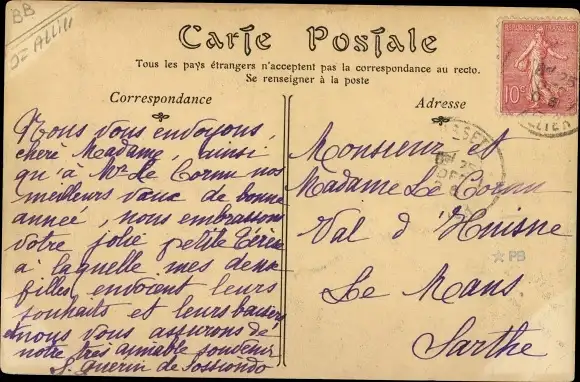 BB
Carte Postale
Tous les pays étrangers n'acceptent pas la correspondance au recto.
Se renseigner à la poste
Correspondance
Adresse
RÉPUBLIQUE FRANÇAISE
10c
Nous vous envoyons,
chère Madame, ainsi
qu'à Mr Le Cornu nos
meilleurs vœux de bonne
année, nous embrassons
votre jolie petite
à laquelle mes deux
filles envoient leurs
souhaits et leurs baisers
et nous vous assurons de
notre très aimable souvenir
S. Guerin de
Monsieur et
Madame Le Cornu
Val d'Huisne
PB
Le Mans
Sarthe
ALLIER
25